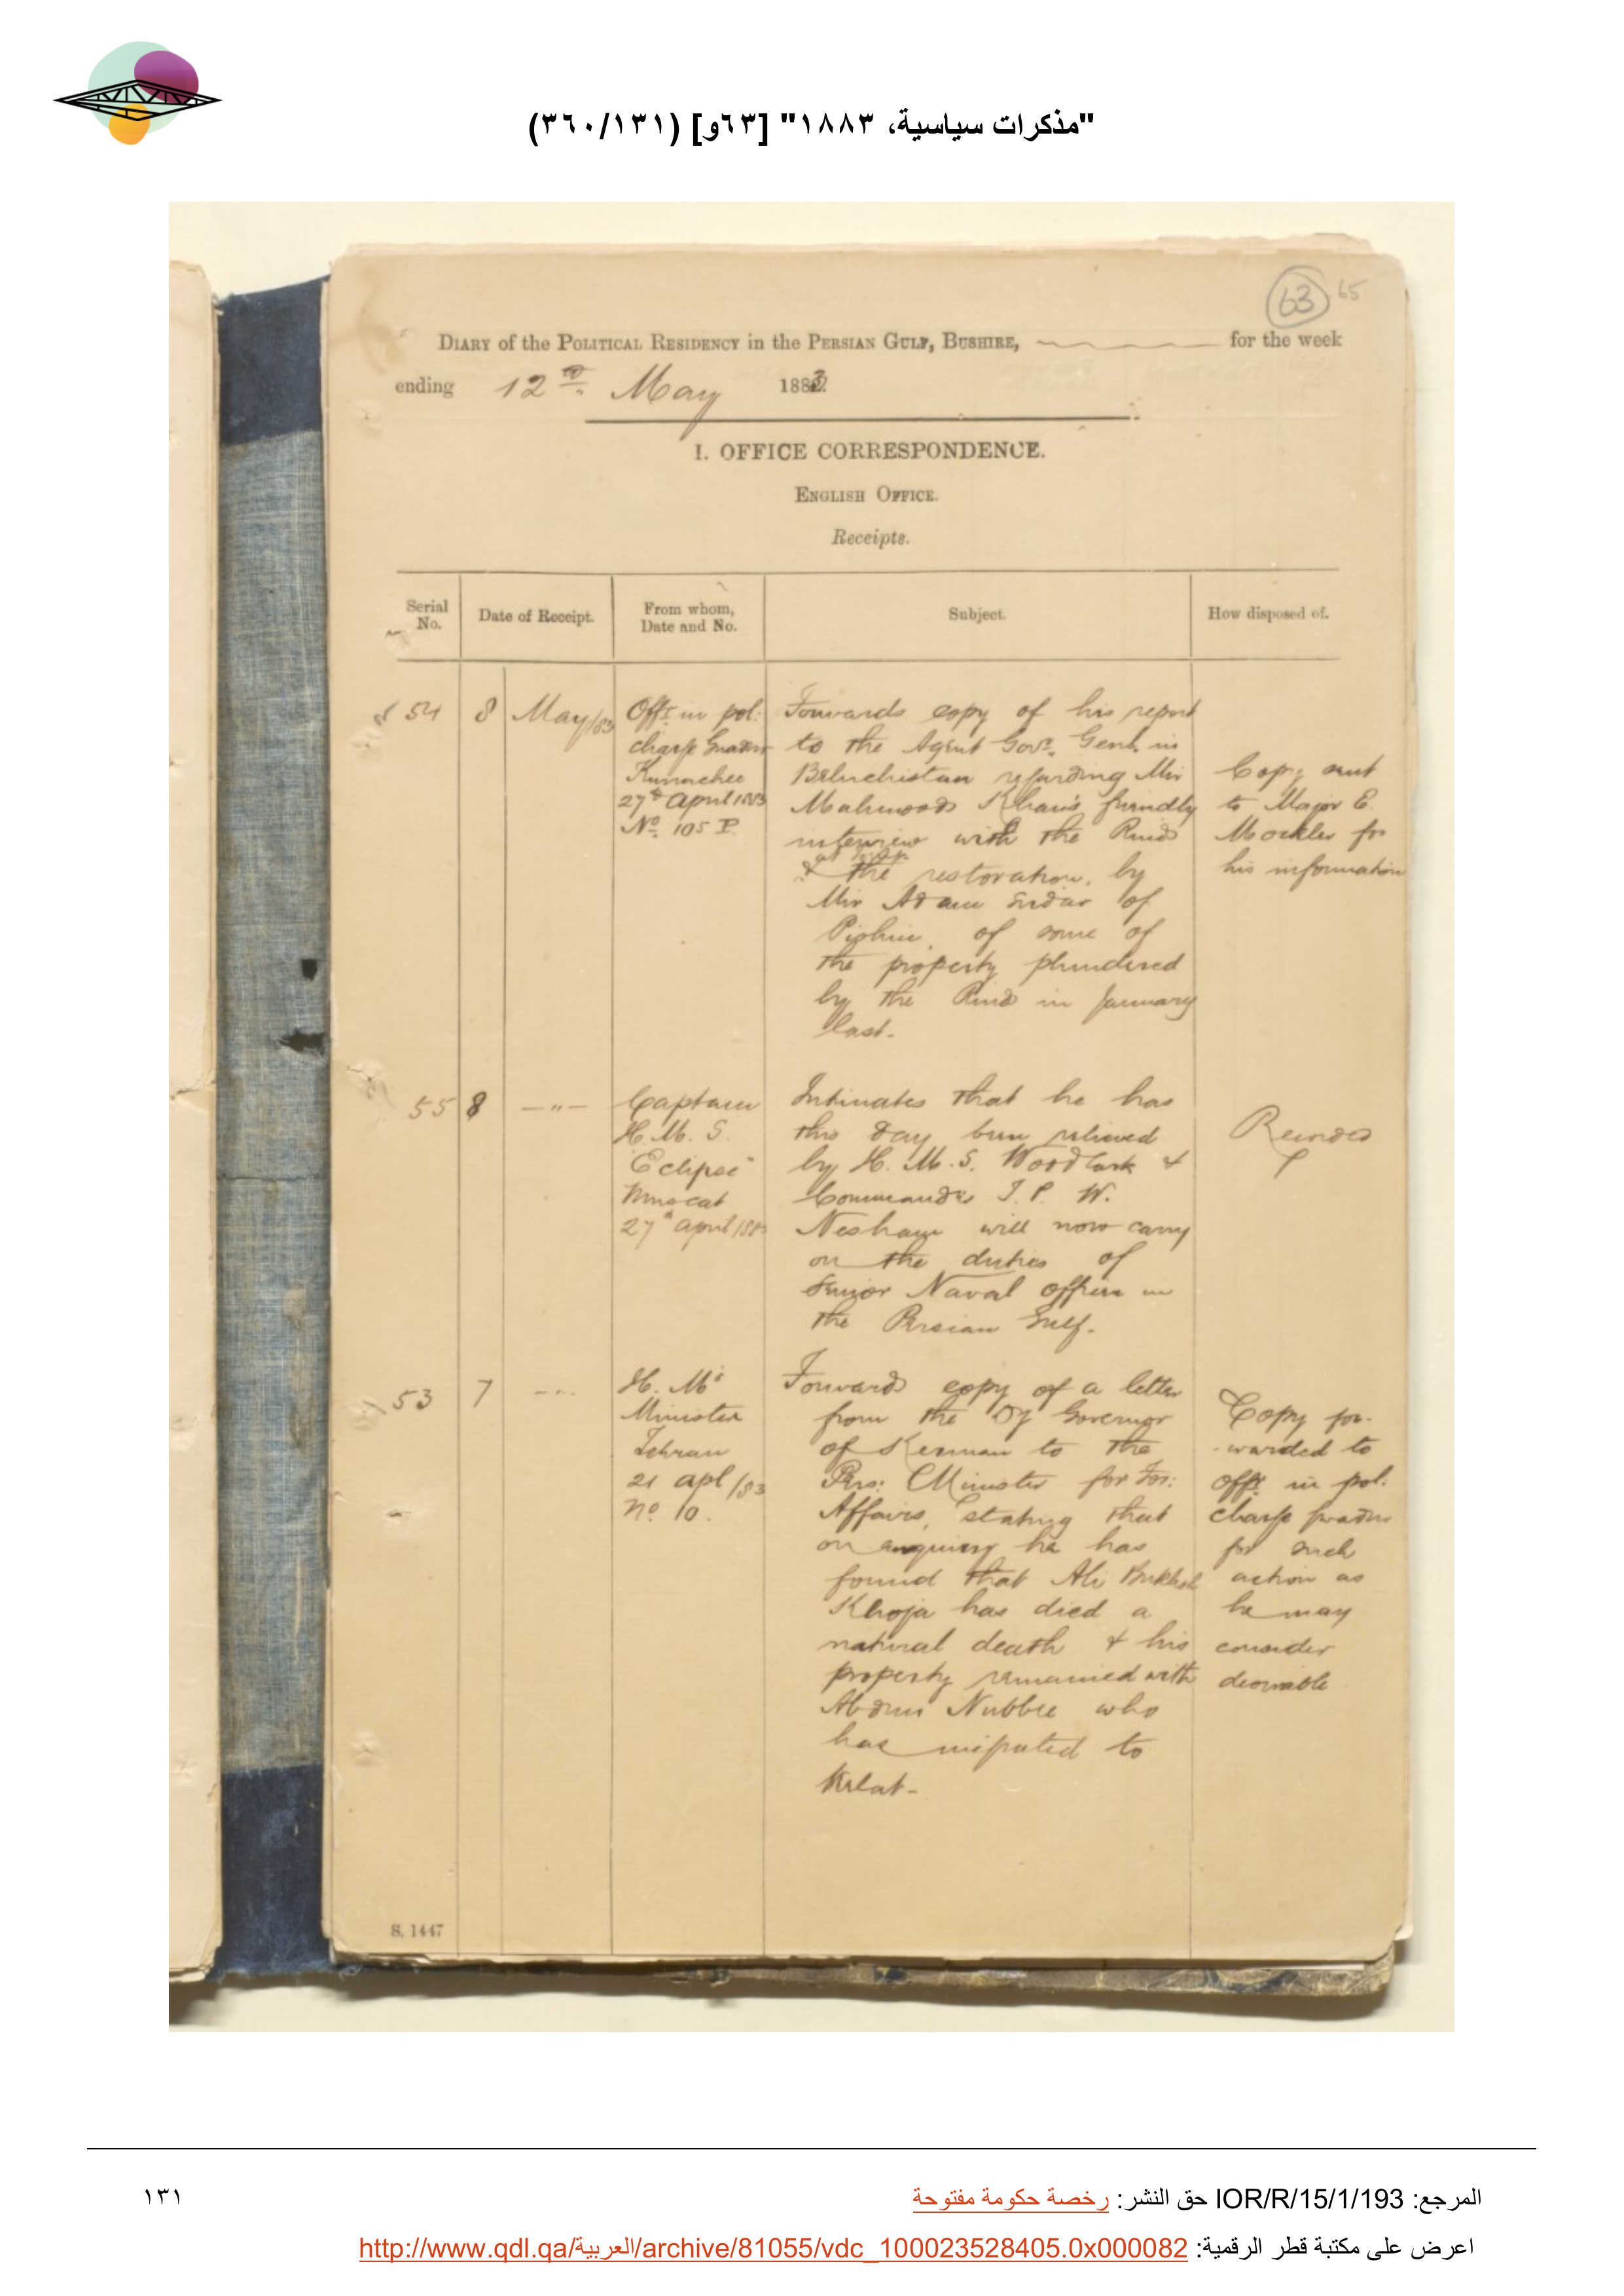 "مذكرات سياسية، ١٨٨٣" [٦٣و] (٣٦٠/١٣١)
63 65
DIARY of the POLITICAL RESIDENCY in the PERSIAN GULF, BUSHIRE, for the week
ending 12th May 1883
I. OFFICE CORRESPONDENCE.
ENGLISH OFFICE.
Receipts.
Serial No. Date of Receipt. From whom, Date and No. Subject. How disposed of.
54 8 May/83
Offr in pol:
charge Guadur
Kurrachee
27th April 1883
No. 105 P.
Forwards copy of his report
to the Agent Govr. Genl. in
Beluchistan regarding Mir
Mahmood Khan's friendly
interview with the Rind
& the restoration, by
Mir Adam Sirdar of
Pishin, of some of
the property plundered
by the Rind in January
last.
Copy sent
to Major E.
Mockler for
his information
55 8 —"—
Captain
H. M. S.
"Eclipse"
Muscat
27th April/83
Intimates that he has
this day been relieved
by H. M. S. Woodlark &
Commander J. P. W.
Nesham will now carry
on the duties of
Senior Naval officer in
the Persian Gulf.
Recorded
53 7 -"-
H. M's
Minister
Tehran
21 apl/83
No. 10.
Forwards copy of a letter
from the Dy Governor
of Kerman to the
Pers: Minister for For:
Affairs, stating that
on enquiry he has
found that Ali Bukhsh
Khoja has died a
natural death & his
property remained with
Abdun Nubbee who
has to
Kelat-
Copy for-
-warded to
offr in pol:
charge Guadur
for such
action as
he may
consider
desirable
S. 1447
المرجع: IOR/R/15/1/193 حق النشر: رخصة حكومة مفتوحة
١٣١
اعرض على مكتبة قطر الرقمية: http://www.qdl.qa/العربية/archive/81055/vdc_100023528405.0x000082